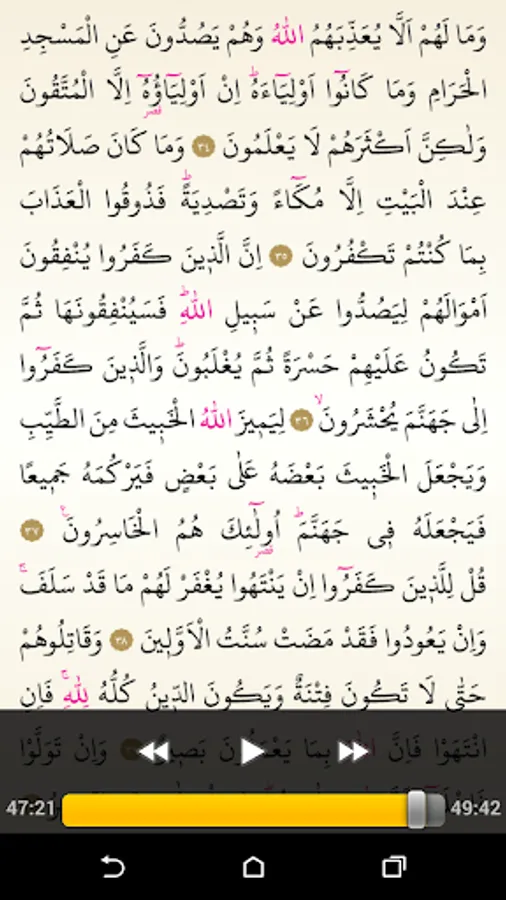 وَمَا لَهُمْ اَلَّا يُعَذِّبَهُمُ اللّٰهُ وَهُمْ يَصُدُّونَ عَنِ الْمَسْجِدِ
الْحَرَامِ وَمَا كَانُٓوا اَوْلِيَٓاءَهُۜ اِنْ اَوْلِيَٓاؤُ۬هُٓ اِلَّا الْمُتَّقُونَ
قصر
وَلٰكِنَّ اَكْثَرَهُمْ لَا يَعْلَمُونَ ﴿٣٤﴾ وَمَا كَانَ صَلَاتُهُمْ
عِنْدَ الْبَيْتِ اِلَّا مُكَٓاءً وَتَصْدِيَةًۜ فَذُوقُوا الْعَذَابَ
بِمَا كُنْتُمْ تَكْفُرُونَ ﴿٣٥﴾ اِنَّ الَّذ۪ينَ كَفَرُوا يُنْفِقُونَ
اَمْوَالَهُمْ لِيَصُدُّوا عَنْ سَب۪يلِ اللّٰهِۜ فَسَيُنْفِقُونَهَا ثُمَّ
تَكُونُ عَلَيْهِمْ حَسْرَةً ثُمَّ يُغْلَبُونَۜ وَالَّذ۪ينَ كَفَرُٓوا
اِلٰى جَهَنَّمَ يُحْشَرُونَۙ ﴿٣٦﴾ لِيَم۪يزَ اللّٰهُ الْخَب۪يثَ مِنَ الطَّيِّبِ
وَيَجْعَلَ الْخَب۪يثَ بَعْضَهُ عَلٰى بَعْضٍ فَيَرْكُمَهُ جَم۪يعًا
فَيَجْعَلَهُ ف۪ى جَهَنَّمَۜ اُو۬لٰٓئِكَ هُمُ الْخَاسِرُونَ۟ ﴿٣٧﴾
قصر
قُلْ لِلَّذ۪ينَ كَفَرُٓوا اِنْ يَنْتَهُوا يُغْفَرْ لَهُمْ مَا قَدْ سَلَفَۚ
وَاِنْ يَعُودُوا فَقَدْ مَضَتْ سُنَّتُ الْاَوَّل۪ينَ ﴿٣٨﴾ وَقَاتِلُوهُمْ
حَتّٰى لَا تَكُونَ فِتْنَةٌ وَيَكُونَ الدّ۪ينُ كُلُّهُ لِلّٰهِۚ فَاِنِ
انْتَهَوْا فَاِنَّ اللّٰهَ بِمَا يَعْمَلُونَ بَص۪يرٌ وَاِنْ تَوَلَّوْا
47:21 49:42